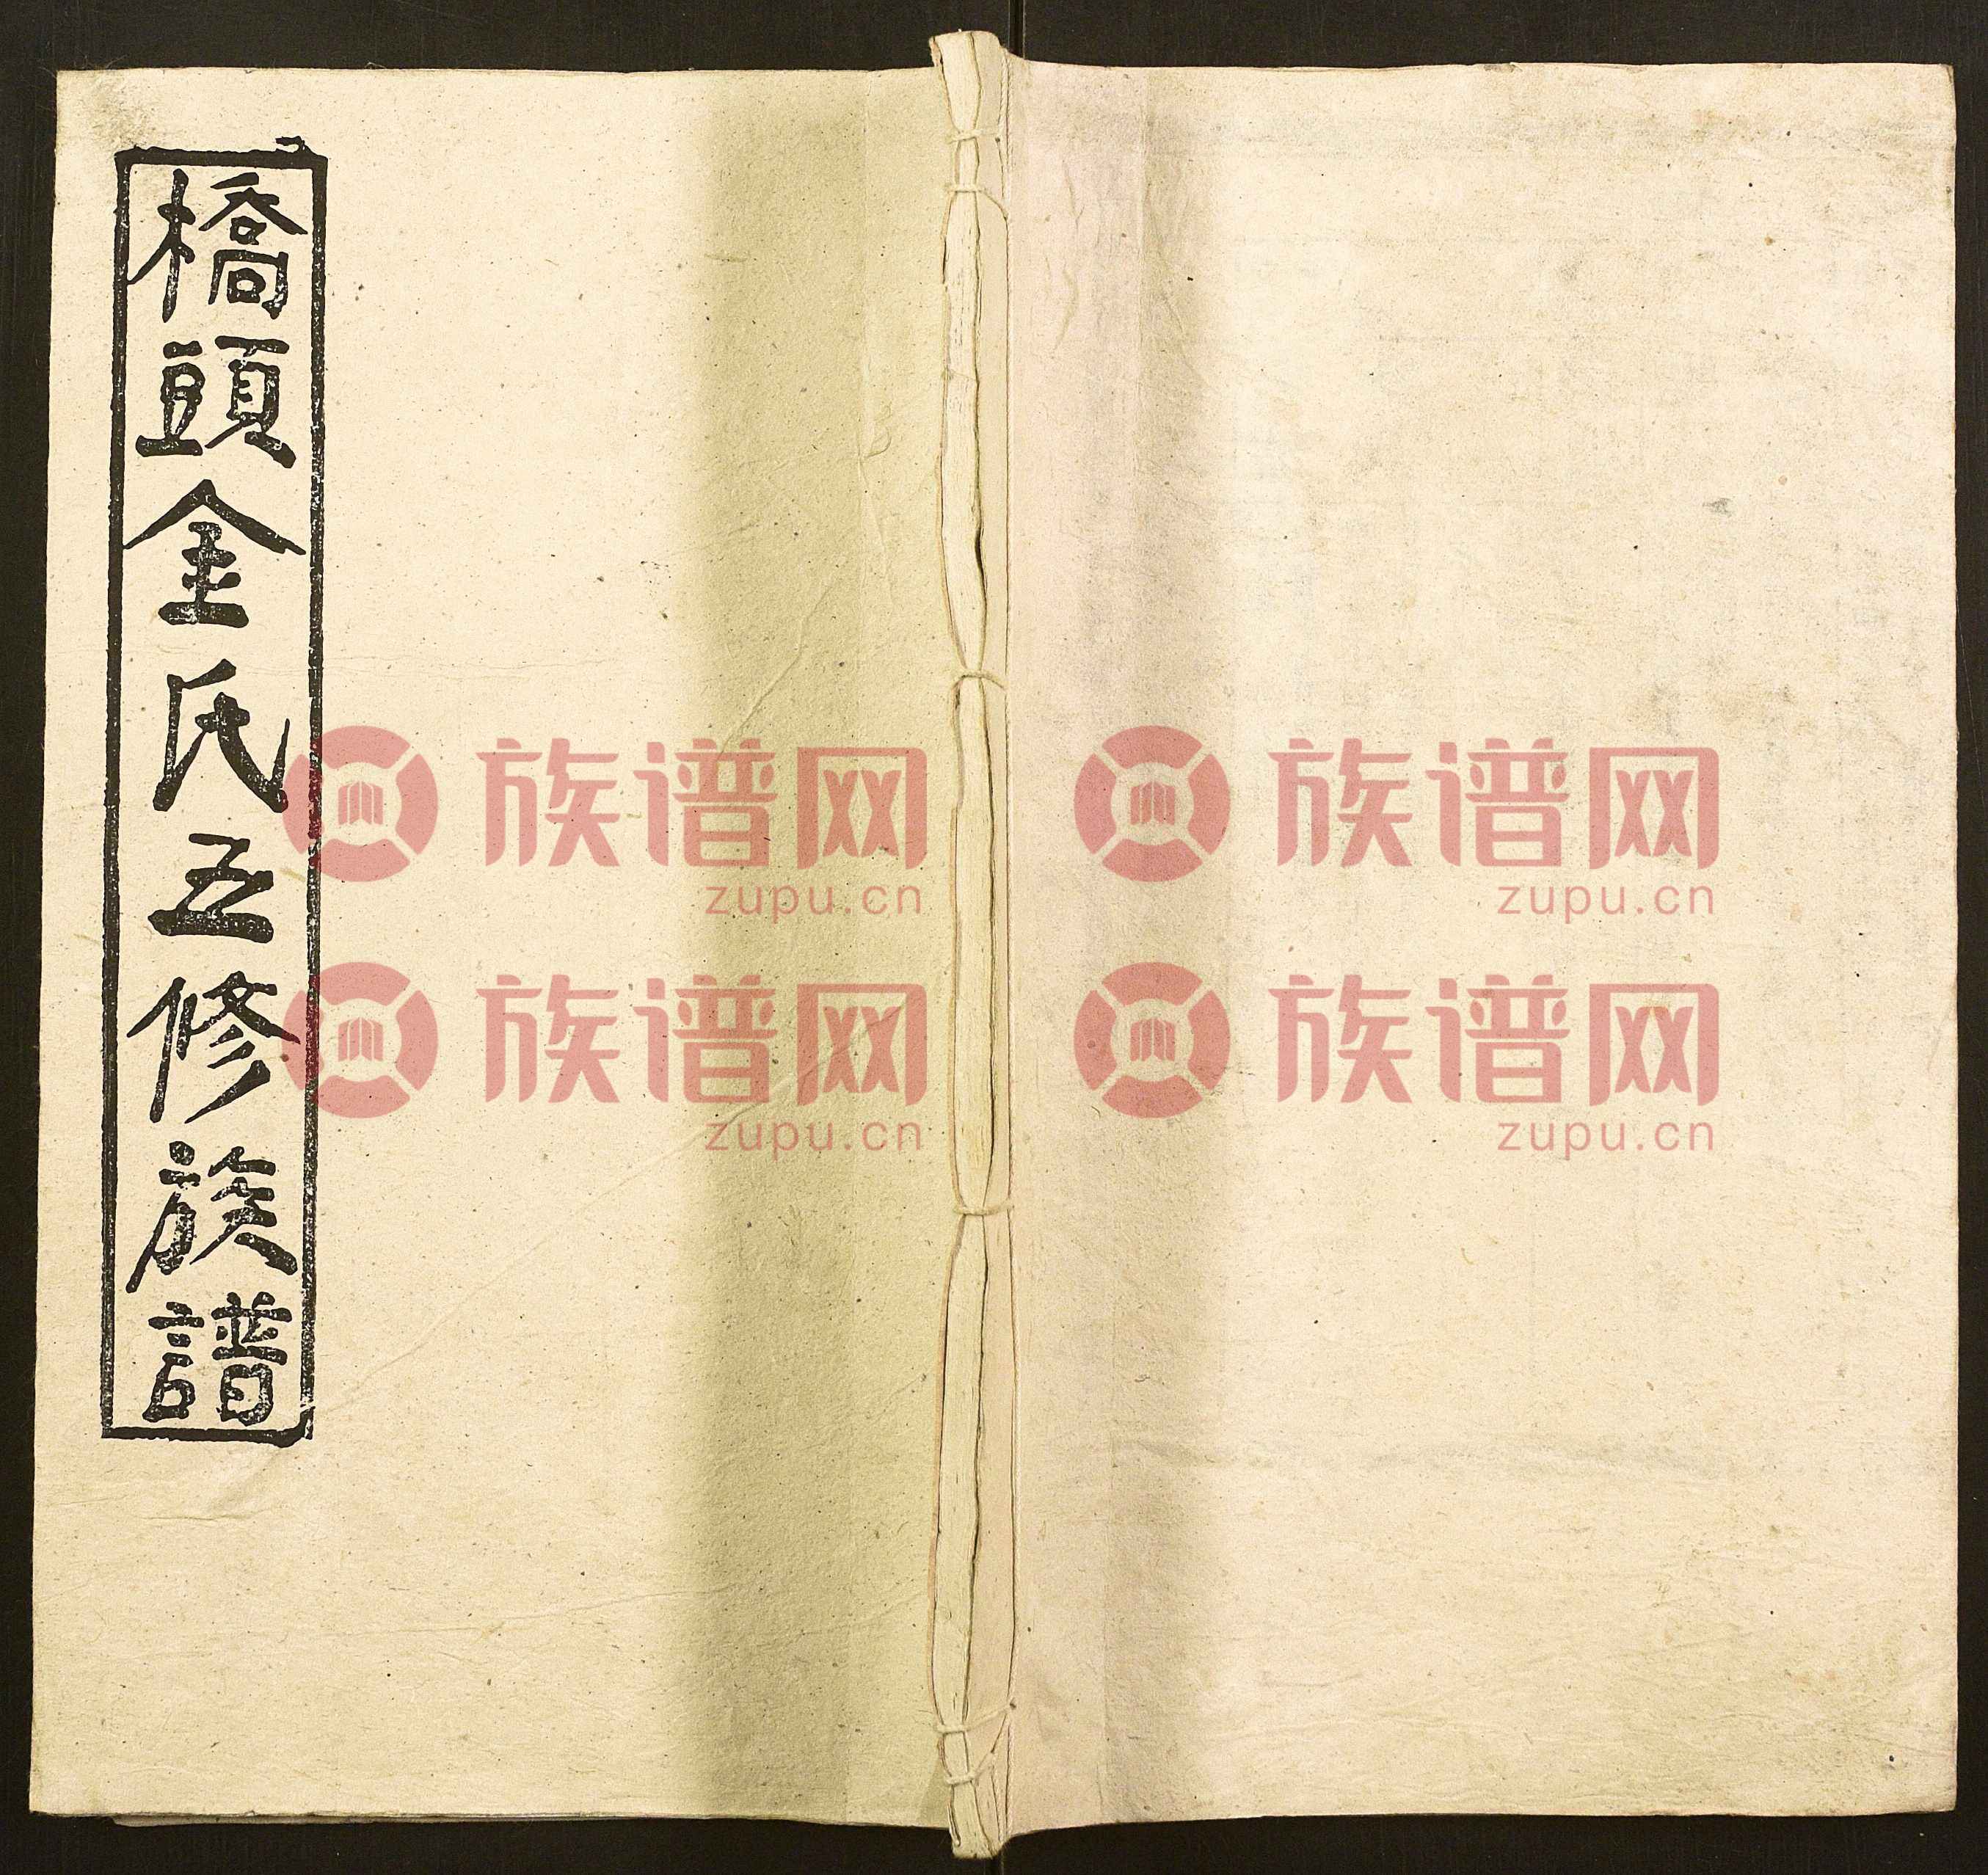 橋頭金氏五修族譜
族谱网 族谱网
zupu.cn zupu.cn
族谱网 族谱网
zupu.cn zupu.cn